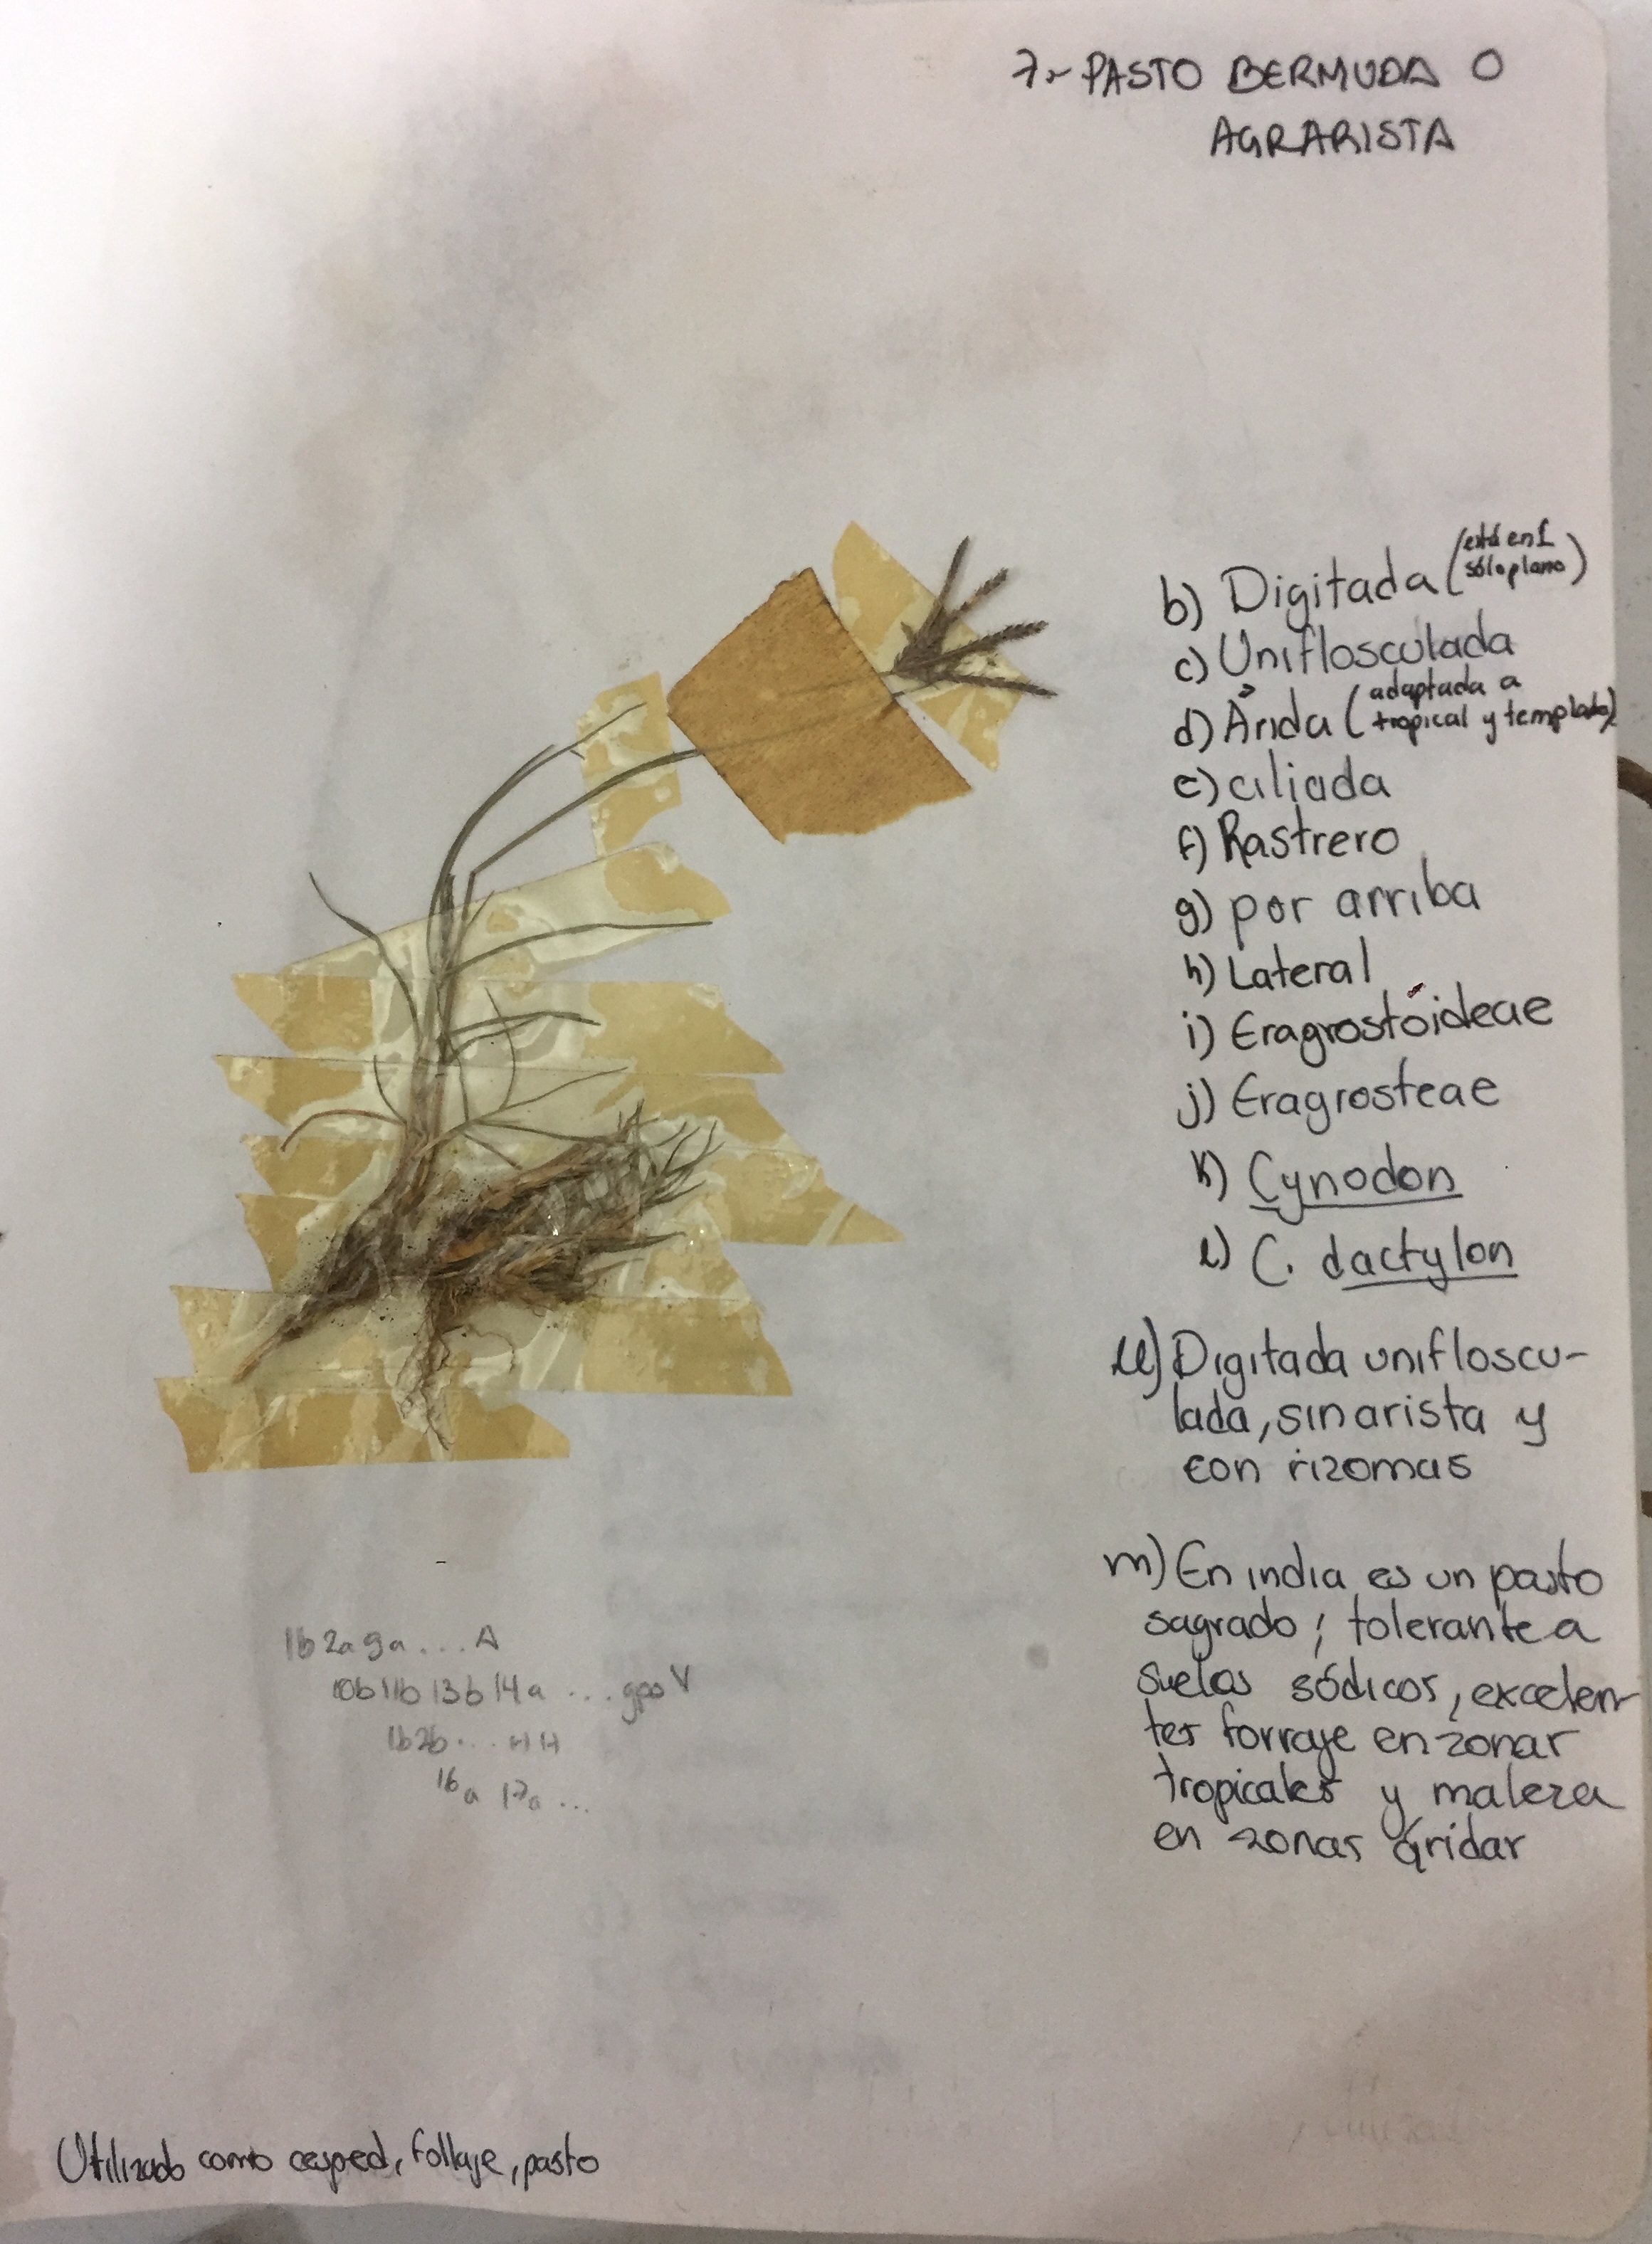 7.- PASTO BERMUDA O
AGRARISTA
b) Digitada (está en 1
sólo plano)
c) Uniflosculada
d) Árida (adaptada a
tropical y templado)
e) ciliada
f) Rastrero
g) por arriba
h) Lateral
i) Eragrostóideae
j) Eragrosteae
k) Cynodon
l) C. dactylon
ll) Digitada unifloscu-
lada, sin arista y
con rizomas
m) En india es un pasto
sagrado; tolerante a
suelos sódicos, excelen-
tes forraje en zonas
tropicales y maleza
en zonas áridas
1b 2a 9a ... A
10b 11b 13b 14a ... gpo V
1b 2b ... HH
16a 17a ...
Utilizado como cesped, follaje, pasto